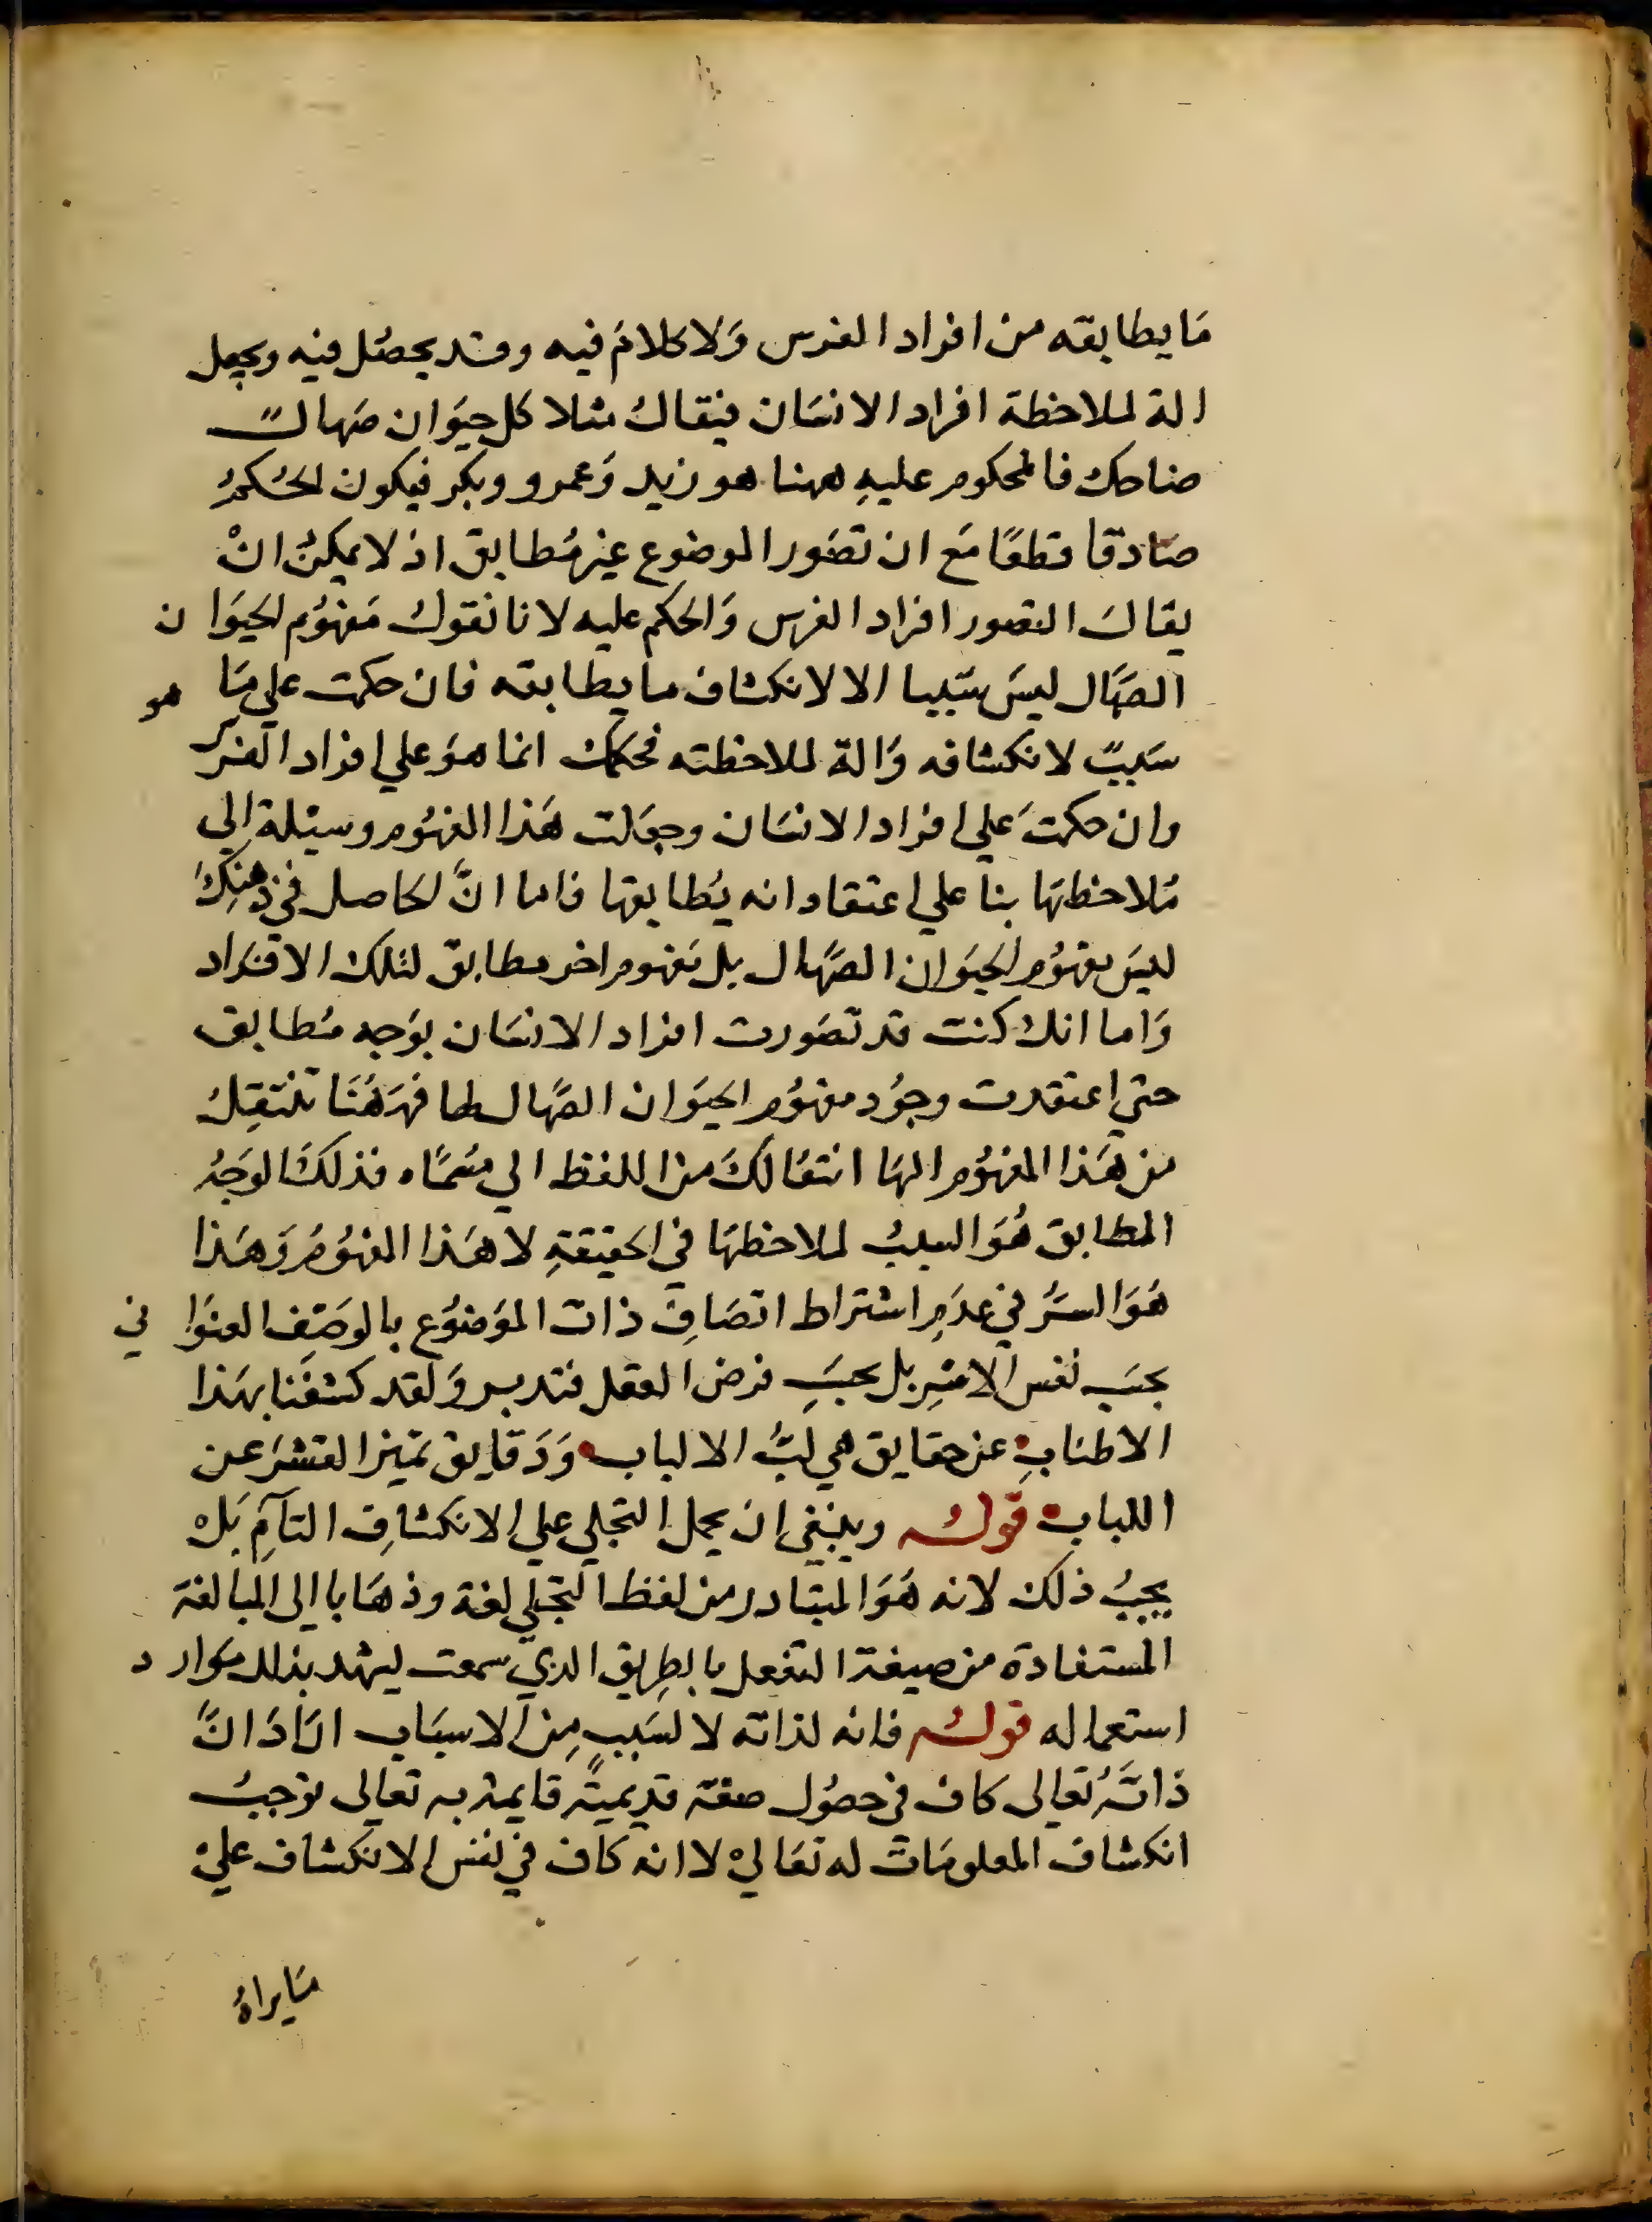 مَا يطابقه من افراد الفرس وَلا كلامَ فيه وقد يحصُل فيه ويجعل
الة لملاحظة افراد الانسَان فيقالُ مثلا كل حيَوان صَهالٌ
ضاحك فالمحكوم عليهِ ههنا هو زيد وَعمرو وبكر فيكون الحُكمُ
صَادقا قطعًا مَع ان تصَور الموضوع غير مُطابق اذ لا يمكنُ انْ
يقالَ التصور افراد الفرس وَالحكم عليه لانا نقولُ مَفهوُم الحيَوان
الصَهَّال ليسَ سَببا الا لانكشاف ما يطابقه فان حكمت علي مَا هو
سَببٌ لانكشافه وَالة لملاحظته فحكمك انما هوَ علي افراد الفرس
وان حكمتَ علي افراد الانسَان وجعَلت هَذا المفهُوم وسيْلة الي
مُلاحظتهَا بنا علي اعتقاد انه يُطابقها فاما انَّ الحاصل في ذهنِكَ
ليسَ مفهوُم الحيَوان الصَهَّال بل مَفهوم اخر مطابق لتلك الافرَاد
وَاما انك كنت قد تصَورت افراد الانسَان بوَجه مُطابق
حتي اعتقدت وجوُد مفهوُم الحيَوان الصَّهال لها فهَهُنَا تنتَقِلُ
من هَذا المفهوُم الهَا انتقالكَ من اللفظ الي مسَمَّاه فذلكَ الوَجهُ
المطابق هُوَ السببُ لملاحظتهَا في الحقيقةِ لا هَذا المفهوُمُ وَهَذا
هَوَ السرُّ في عدَمِ اشتراط اتصَافِ ذات الموَضوُع بالوَصَفِ العنوَاني
بحسَب نفس الامَرِ بل بحسَبِ فرض العقل فتدبر وَلقد كشفَنا بهَذا
الاطنابِ عن حقايق هي لبُّ الالباب وَدَقايق تميز القشرَ عن
اللباب قولُه وينبغي ان يحمل التجلي علي الانكشافِ التآمِ بَلْ
يجبُ ذلك لانه هَوَ المتبادر من لفظ التجلي لغة وذهَابا الى المبالغة
المستفادة من صيغة التفعل بالطريق الذي سمعت ليشهد بذلك مَوارد
استعماله قوله فانه لذاته لا لسَببٍ مِن الاسبَاب ارَادَ انَّ
ذاتَهُ تعالى كاف في حصُول صفة قديميةٍ قايمة به تعالى توجبُ
انكشاف المعلومَات له تعَاليْ لا انه كاف في نفس الانكشاف عليْ
مَا يراهُ